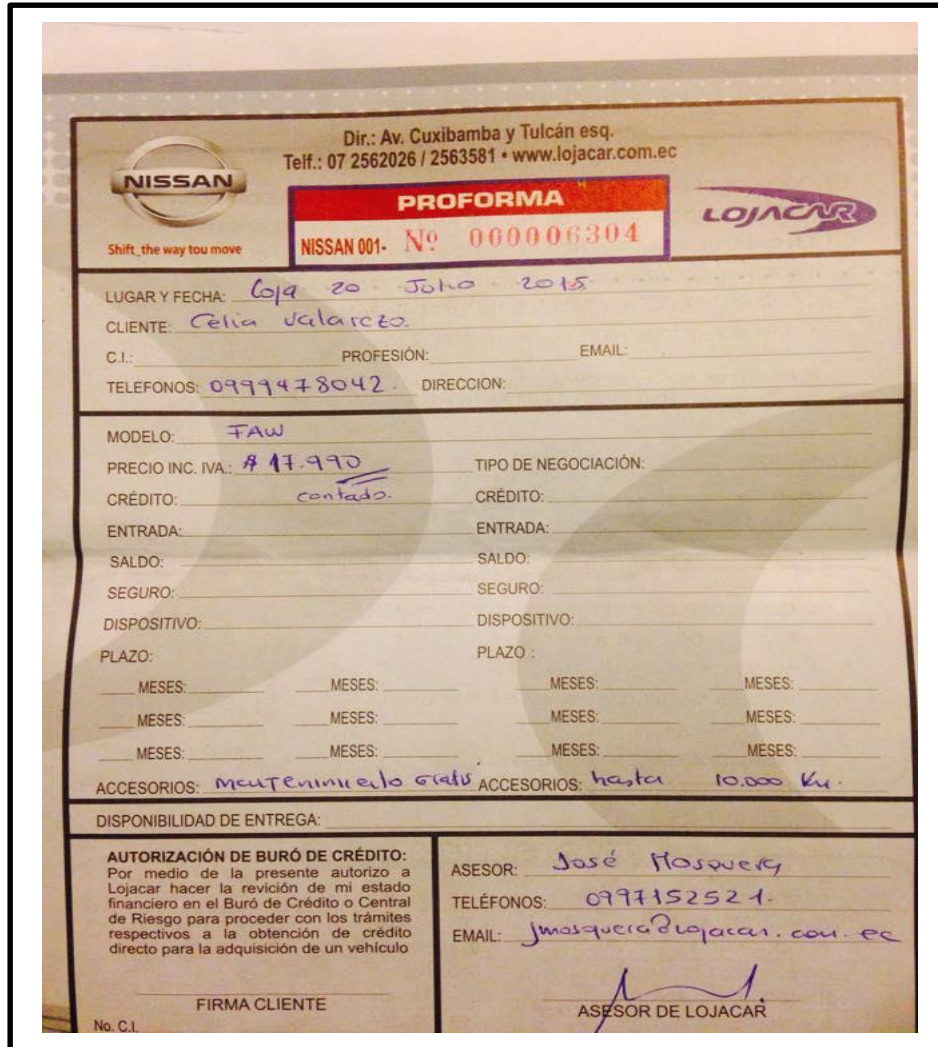 Dir.: Av. Cuxibamba y Tulcán esq.
Telf.: 07 2562026 / 2563581 • www.lojacar.com.ec
NISSAN
Shift_the way tou move
PROFORMA
NISSAN 001- Nº 000006304
LOJACAR
LUGAR Y FECHA: Loja 20 Julio 2015
CLIENTE: Celia Valarezo.
C.I.: PROFESIÓN: EMAIL:
TELEFONOS: 09999478042. DIRECCION:
MODELO: FAW
PRECIO INC. IVA.: $ 17.990 TIPO DE NEGOCIACIÓN:
CRÉDITO: contado. CRÉDITO:
ENTRADA: ENTRADA:
SALDO: SALDO:
SEGURO: SEGURO:
DISPOSITIVO: DISPOSITIVO:
PLAZO: PLAZO :
MESES: MESES: MESES: MESES:
MESES: MESES: MESES: MESES:
MESES: MESES: MESES: MESES:
ACCESORIOS: Mantenimiento Gratis ACCESORIOS: hasta 10.000 Km.
DISPONIBILIDAD DE ENTREGA:
AUTORIZACIÓN DE BURÓ DE CRÉDITO:
Por medio de la presente autorizo a
Lojacar hacer la revición de mi estado
financiero en el Buró de Crédito o Central
de Riesgo para proceder con los trámites
respectivos a la obtención de crédito
directo para la adquisición de un vehículo
FIRMA CLIENTE
No. C.I.
ASESOR: José Mosquera
TELÉFONOS: 0997152521.
EMAIL: jmosquera@lojacar.com.ec
ASESOR DE LOJACAR